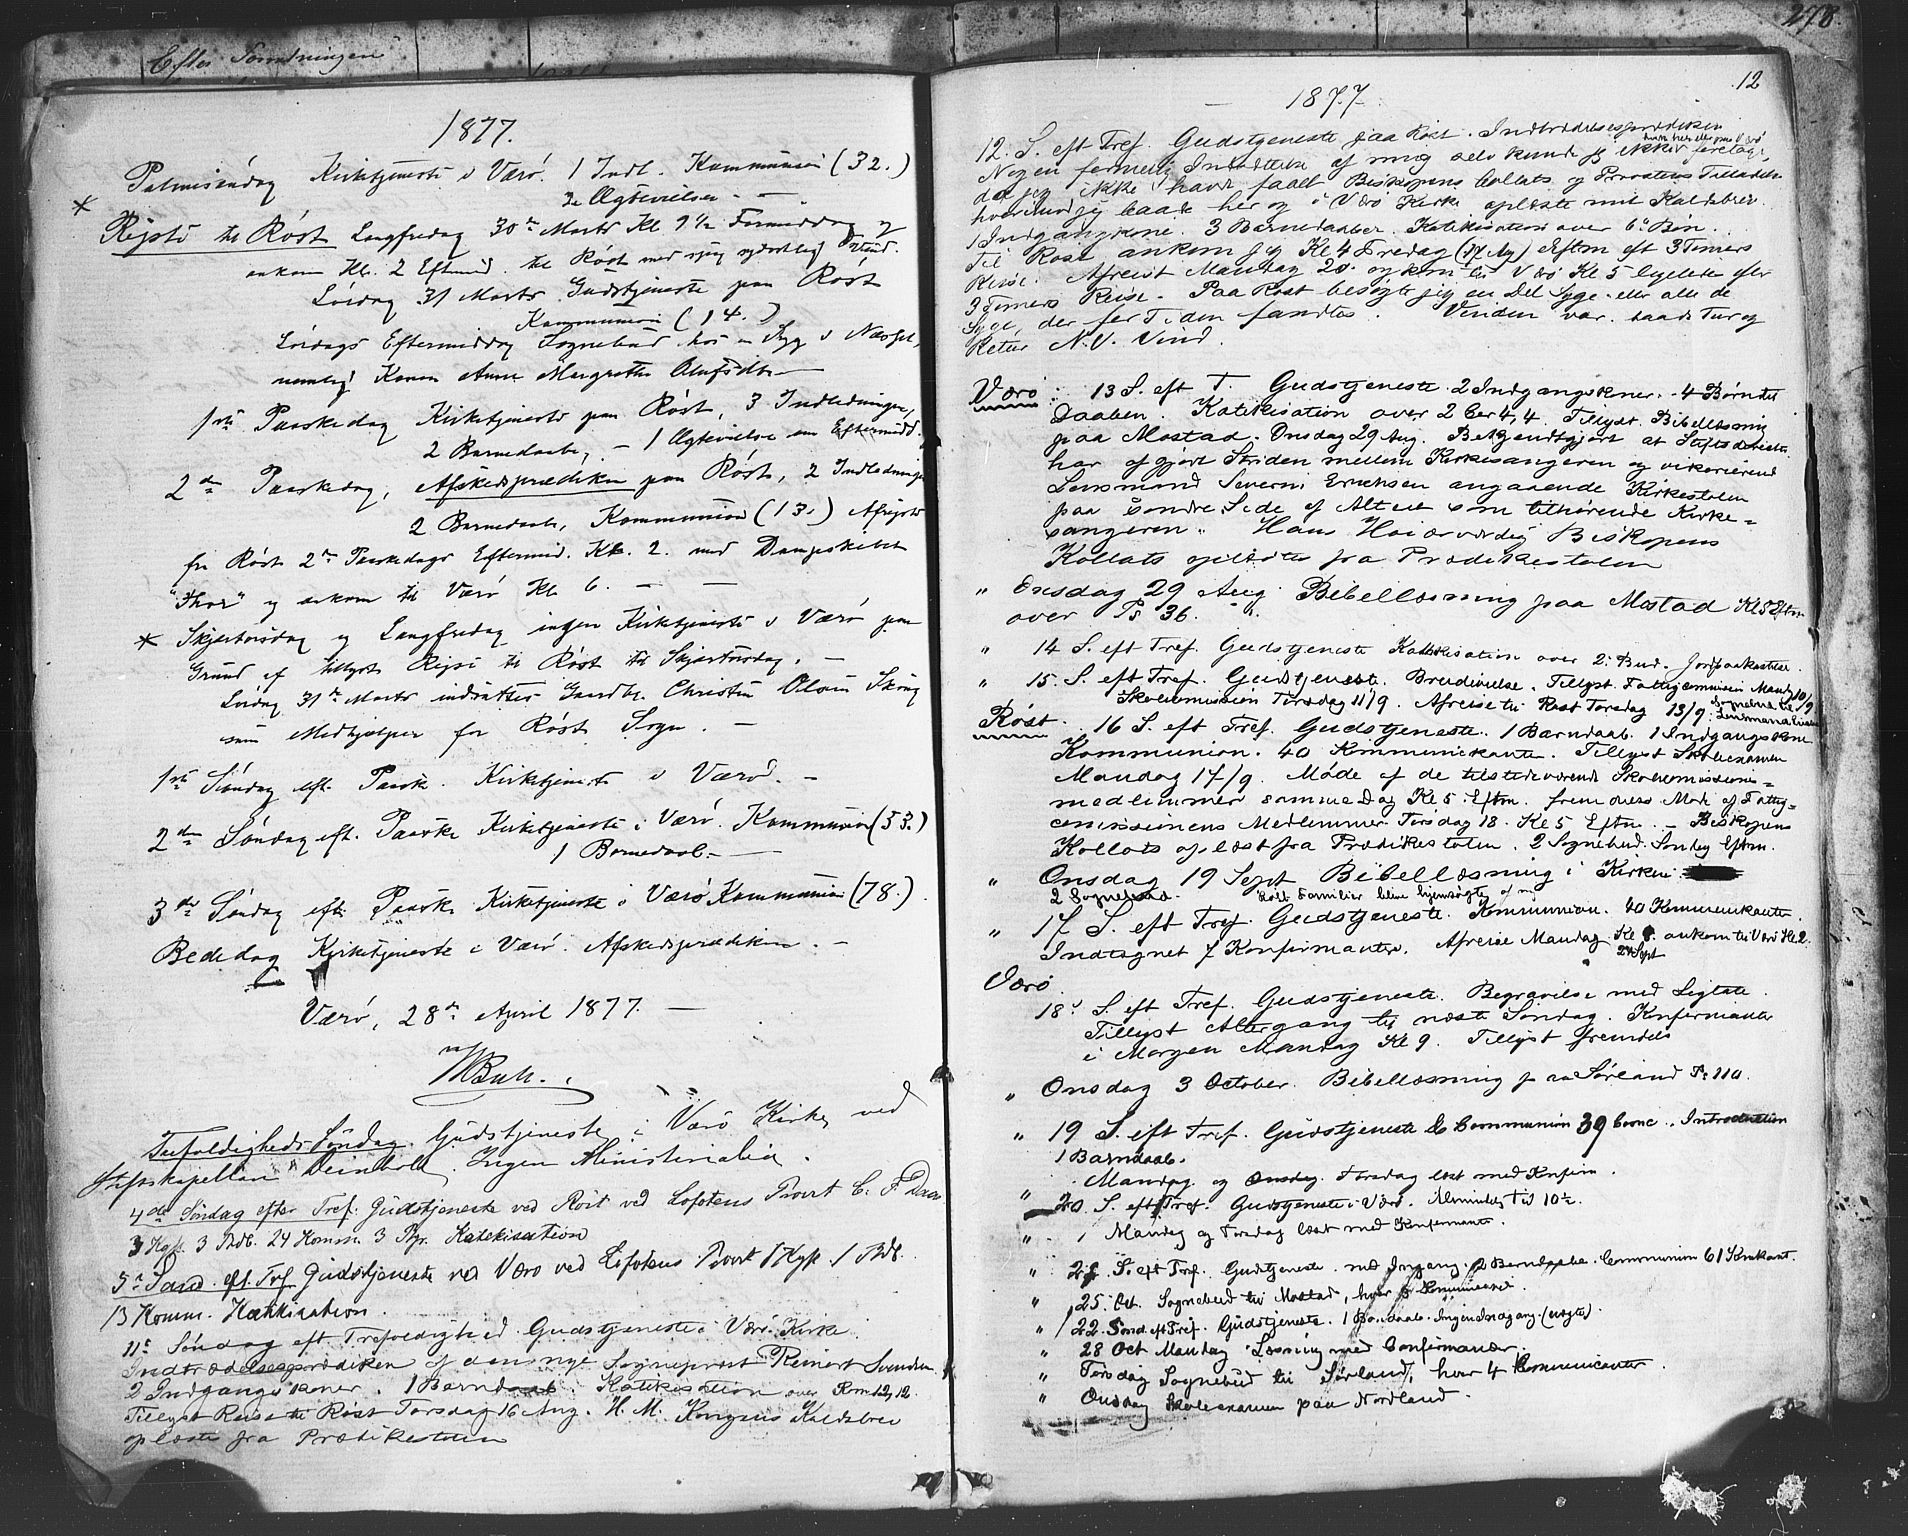 Efter Forretningen
1877.
Palmesöndag Kirketjeneste i Værö. 1 Indl. Kommunion (32.)
2 Ægtevielser. —
* Rejste til Röst Langfredag 30te Marts Kl 9½ Formiddag og
ankom Kl. 2 Eftmid. til Röst med
Löidag 31 Marts Gudstjeneste paa Röst
Kommunion (14.)
Löidags Eftermiddag Sognebud hos en Syg i Næsset,
nemlig Konen Anne Margrethe Olufsdtr. —
1ste Paaskedag Kirketjeneste paa Röst, 3 Indledninger,
2 Barnedaab, — 1 Ægtevielse om Eftermidd.
2den Paaskedag, Afskedsprædiken paa Röst, 2 Indledninger
2 Barnedaab, Kommunion (13.) Afrejste
fra Röst 2den Paaskedags Eftermid. Kl. 2. med Dampskibet
"Thor" og ankom til Værö Kl 6. — —
* Skjærtorsdag og Langfredag ingen Kirketjeneste i Værö paa
Grund af tillyst Rejse til Röst til Skjærtorsdag. —
Löidag 31te Marts indsattes Gaardbr. Christen Olsen Skaug
som Medhjælper for Röst Sogn. —
1ste Söndag eft. Paaske. Kirketjeneste i Værö. —
2den Söndag eft. Paaske Kirketjeneste i Værö. Kommunion (53.)
1 Barnedaab. —
3die Söndag eft. Paaske Kirketjeneste i Værö Kommunion (78.)
Bededag Kirketjeneste i Værö. Afskedsprædiken. —
Værö, 28de April 1877. —
Buch.
Trefoldigheds Söndag. Gudstjeneste i Værö Kirke ved
Stiftskapellan Deinboll. Ingen Ministerialia.
4de Söndag efter Tref. Gudstjeneste ved Röst ved Lofotens Provst C. F. Daae
3 Kgsk. 3 Bdb. 24 Komm. 3 Katekisation
5te Sönd. eft. Tref Gudstjeneste ved Værö ved Lofotens Provst 1 Kgsk 1 Bdb.
13 Komm. Katekisation.
11te Söndag eft Trefoldighed Gudstjeneste i Værö Kirke
Indtrædelsesprædiken af den nye Sogneprest Reinert Svendsen
2 Indgangskoner. 1 Barndaab. Katekisation over Rom 12, 12.
Tillyst Reise til Röst Torsdag 16 Aug. H. M. Kongens Kaldsbrev
oplæste fra Prædikestolen
278.
12
1877.
12. S. eft Tref. Gudstjeneste paa Röst. Indtrædelsesprædiken
Nogen formelig Indsættelse af mig selv kunde jeg ikke foretage,
da jeg ikke havde faaet Biskopens Collats og Provstens Tilladelse
hvorimod jeg baade her og i Værö Kirke oplæste mit Kaldsbrev.
1 Indgangskone. 3 Barnedaaber. Katekisation over 6te Bön.
Til Röst ankom jeg Kl 4 Fredag (17 Aug) Eftm eft 3 Timers
Reise. Afreist Mandag 20. og kom til Værö Kl 5 ligeledes efter
3 Timers Reise. Paa Röst besögte jeg en Del Syge eller alle de
Syge, der for Tiden fandtes. Vinden var baade Tur og
Retur N.V. Vind.
Værö: 13 S. eft T. Gudstjeneste 2 Indgangskoner. 4 Börn til
Daaben. Katekisation over 2 Cor 4, 4. Tillyst Bibellæsning
paa Mostad. Onsdag 29 Aug. Bekjendtgjort at Stiftsdirektionen
har afgjort Striden mellem Kirkesangeren og vikarierende
Lensmand Severin Erichsen angaaende Kirkestolen
paa söndre Side af Alteret som tilhörende Kirke=
sangeren. Hans Höiærværdig Biskopens
Kollats oplæstes fra Prædikestolen
" Onsdag 29 Aug. Bibellæsning paa Mostad Kl 5 Eftm
over Ps 36.
" 14 S. eft Tref. Gudstjeneste Katekisation over 2. Bud. Jordpaakastelse.
" 15. S. eft Tref. Gudstjeneste. Brudevielse. Tillyst Fattigcomission Mandg 10/9
Skolecomission Tirsdag 11/9. Afreise til Röst Torsdag 13/9.
Röst. 16 S. eft Tref. Gudstjeneste. 1 Barndaab. 1 Indgangskone
Kommunion. 40 Kommunikanter. Tillyst Skoleexamen
Mandag 17/9. Möde af de tilstedeværende Skolecomissions=
medlemmer samme Dag Kl 5. Eftm. fremdeles Möde af Fattig=
comissionens Medlemmer Tirsdag 18. Kl 5 Eftm. — Biskopens
Kollats oplæst fra Prædikestolen. 2 Sognebud. Söndag Eftm.
" Onsdag 19 Sept Bibellæsning i Kirken.
2 Sognebud. Familier blive hjemsögte af mig
" 17 S. eft Tref. Gudstjeneste. Kommunion. 40 Kommunikanter.
Indtegnet 7 Konfirmanter. Afreise Mandag Kl 8. ankom til Værö Kl 2.
24 Sept
Værö
18. S. eft Tref. Gudstjeneste. Begravelse med Ligtale.
Tillyst Altergang til næste Söndag. Konfirmanter
i Morgen Mandag Kl 9. Tillyst fremdeles
" Onsdag 3 October. Bibellæsning paa Sörland Ps 110.
" 19 S. eft Tref. Gudstjeneste & Communion 39 Introduktion
1 Barndaab.
Mandag og Onsdag Torsdag læst med Konfirm.
" 20. S. eft Tref. Gudstjeneste i Værö.
" Mandag og Torsdag læst med Konfirmanter.
" 21 S. eft Tref. Gudstjeneste. med Ingang. 2 Barndaabe. Communion 61 Komkant.
" 25. Oct. Sognebud til Mostad, hvor
" 22. Sönd eft Tref. Gudstjeneste. 1 Barndaab. Ingen Indgang
" 28 Oct Mandag Læsning med Confirmander.
" Torsdag Sognebud til Sörland, hvor 4 Communicanter.
" Onsdag Skoleexamen paa Nordland.